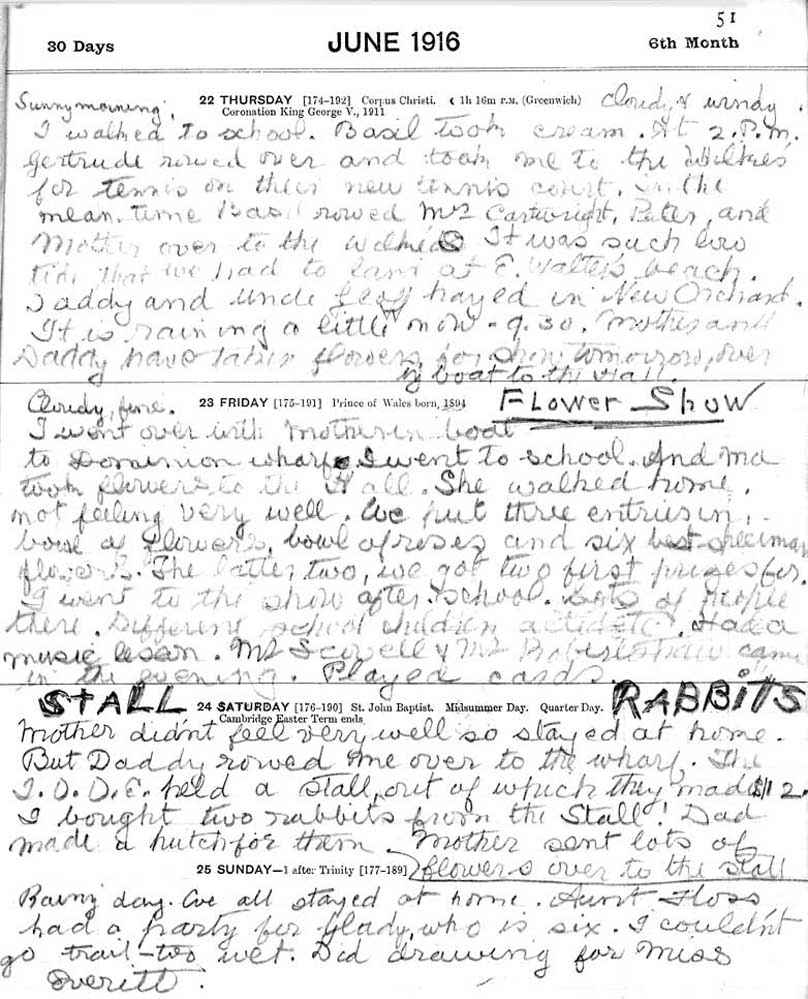 51
30 Days JUNE 1916 6th Month
22 THURSDAY [174-192] Corpus Christi. ☾ 1h 16m P.M. (Greenwich)
Coronation King George V., 1911
Sunny morning, Cloudy & windy.
I walked to school. Basil took cream. At 2. P.m.
Gertrude rowed over and took me to the Wilkies
for tennis on their new tennis court. In the
mean. time Basil rowed Mrs Cartwright, Peter, and
Mother over to the It was such low
tide that we had to land at E. Walter's beach.
Daddy and Uncle hayed in New Orchard.
It is raining a little now - 9.30. Mother and
Daddy have taken flowers, for show tomorrow, over
by boat to the Hall.
Cloudy, fine. 23 FRIDAY [175-191] Prince of Wales born, 1894 FLOWER SHOW
I went over with Mother in boat
to Dominion wharf. I went to school. And ma
took flowers to the Hall. She walked home,
not feeling very well. We put three entries in,
bowl of flowers, bowl of roses and six best specimen
flowers. The latter two, we got two first prizes for.
I went to the show after school. Lots of people
there. Different school children acted etc. Had a
music lesson. & came
in the evening. Played cards
STALL 24 SATURDAY [176-190] St. John Baptist. Midsummer Day. Quarter Day. RABBITS
Cambridge Easter Term ends
Mother didn't feel very well so stayed at home.
But Daddy rowed me over to the wharf. The
I. O. D. E. held a stall, out of which they made $12.
I bought two rabbits from the Stall! Dad
made a hutch for them. Mother sent lots of
flowers over to the stall
25 SUNDAY—1 after Trinity [177-189]
Rainy day. We all stayed at home. Aunt Floss
had a party for Glady, who is six. I couldn't
go trail - too wet. Did drawing for Miss
Everitt.